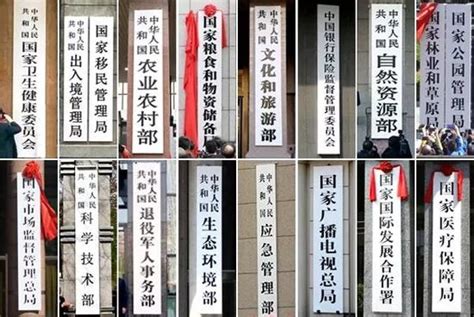 中华人民
共和国
国家卫生健康委员会
国家移民管理局
中华人民
共和国
出入境管理局
中华人民
共和国
农业农村部
国家粮食和物资储备
中华人民
共和国
文化和旅游部
中国银行保险监督管理委员会
中华人民
共和国
自然资源部
国家林业和草原局
国家公园管理局
国家市场监督管理总局
中华人民
共和国
科学技术部
中华人民
共和国
退役军人事务部
中华人民
共和国
生态环境部
中华人民
共和国
应急管理部
国家广播电视总局
国家国际发展合作署
国家医疗保障局